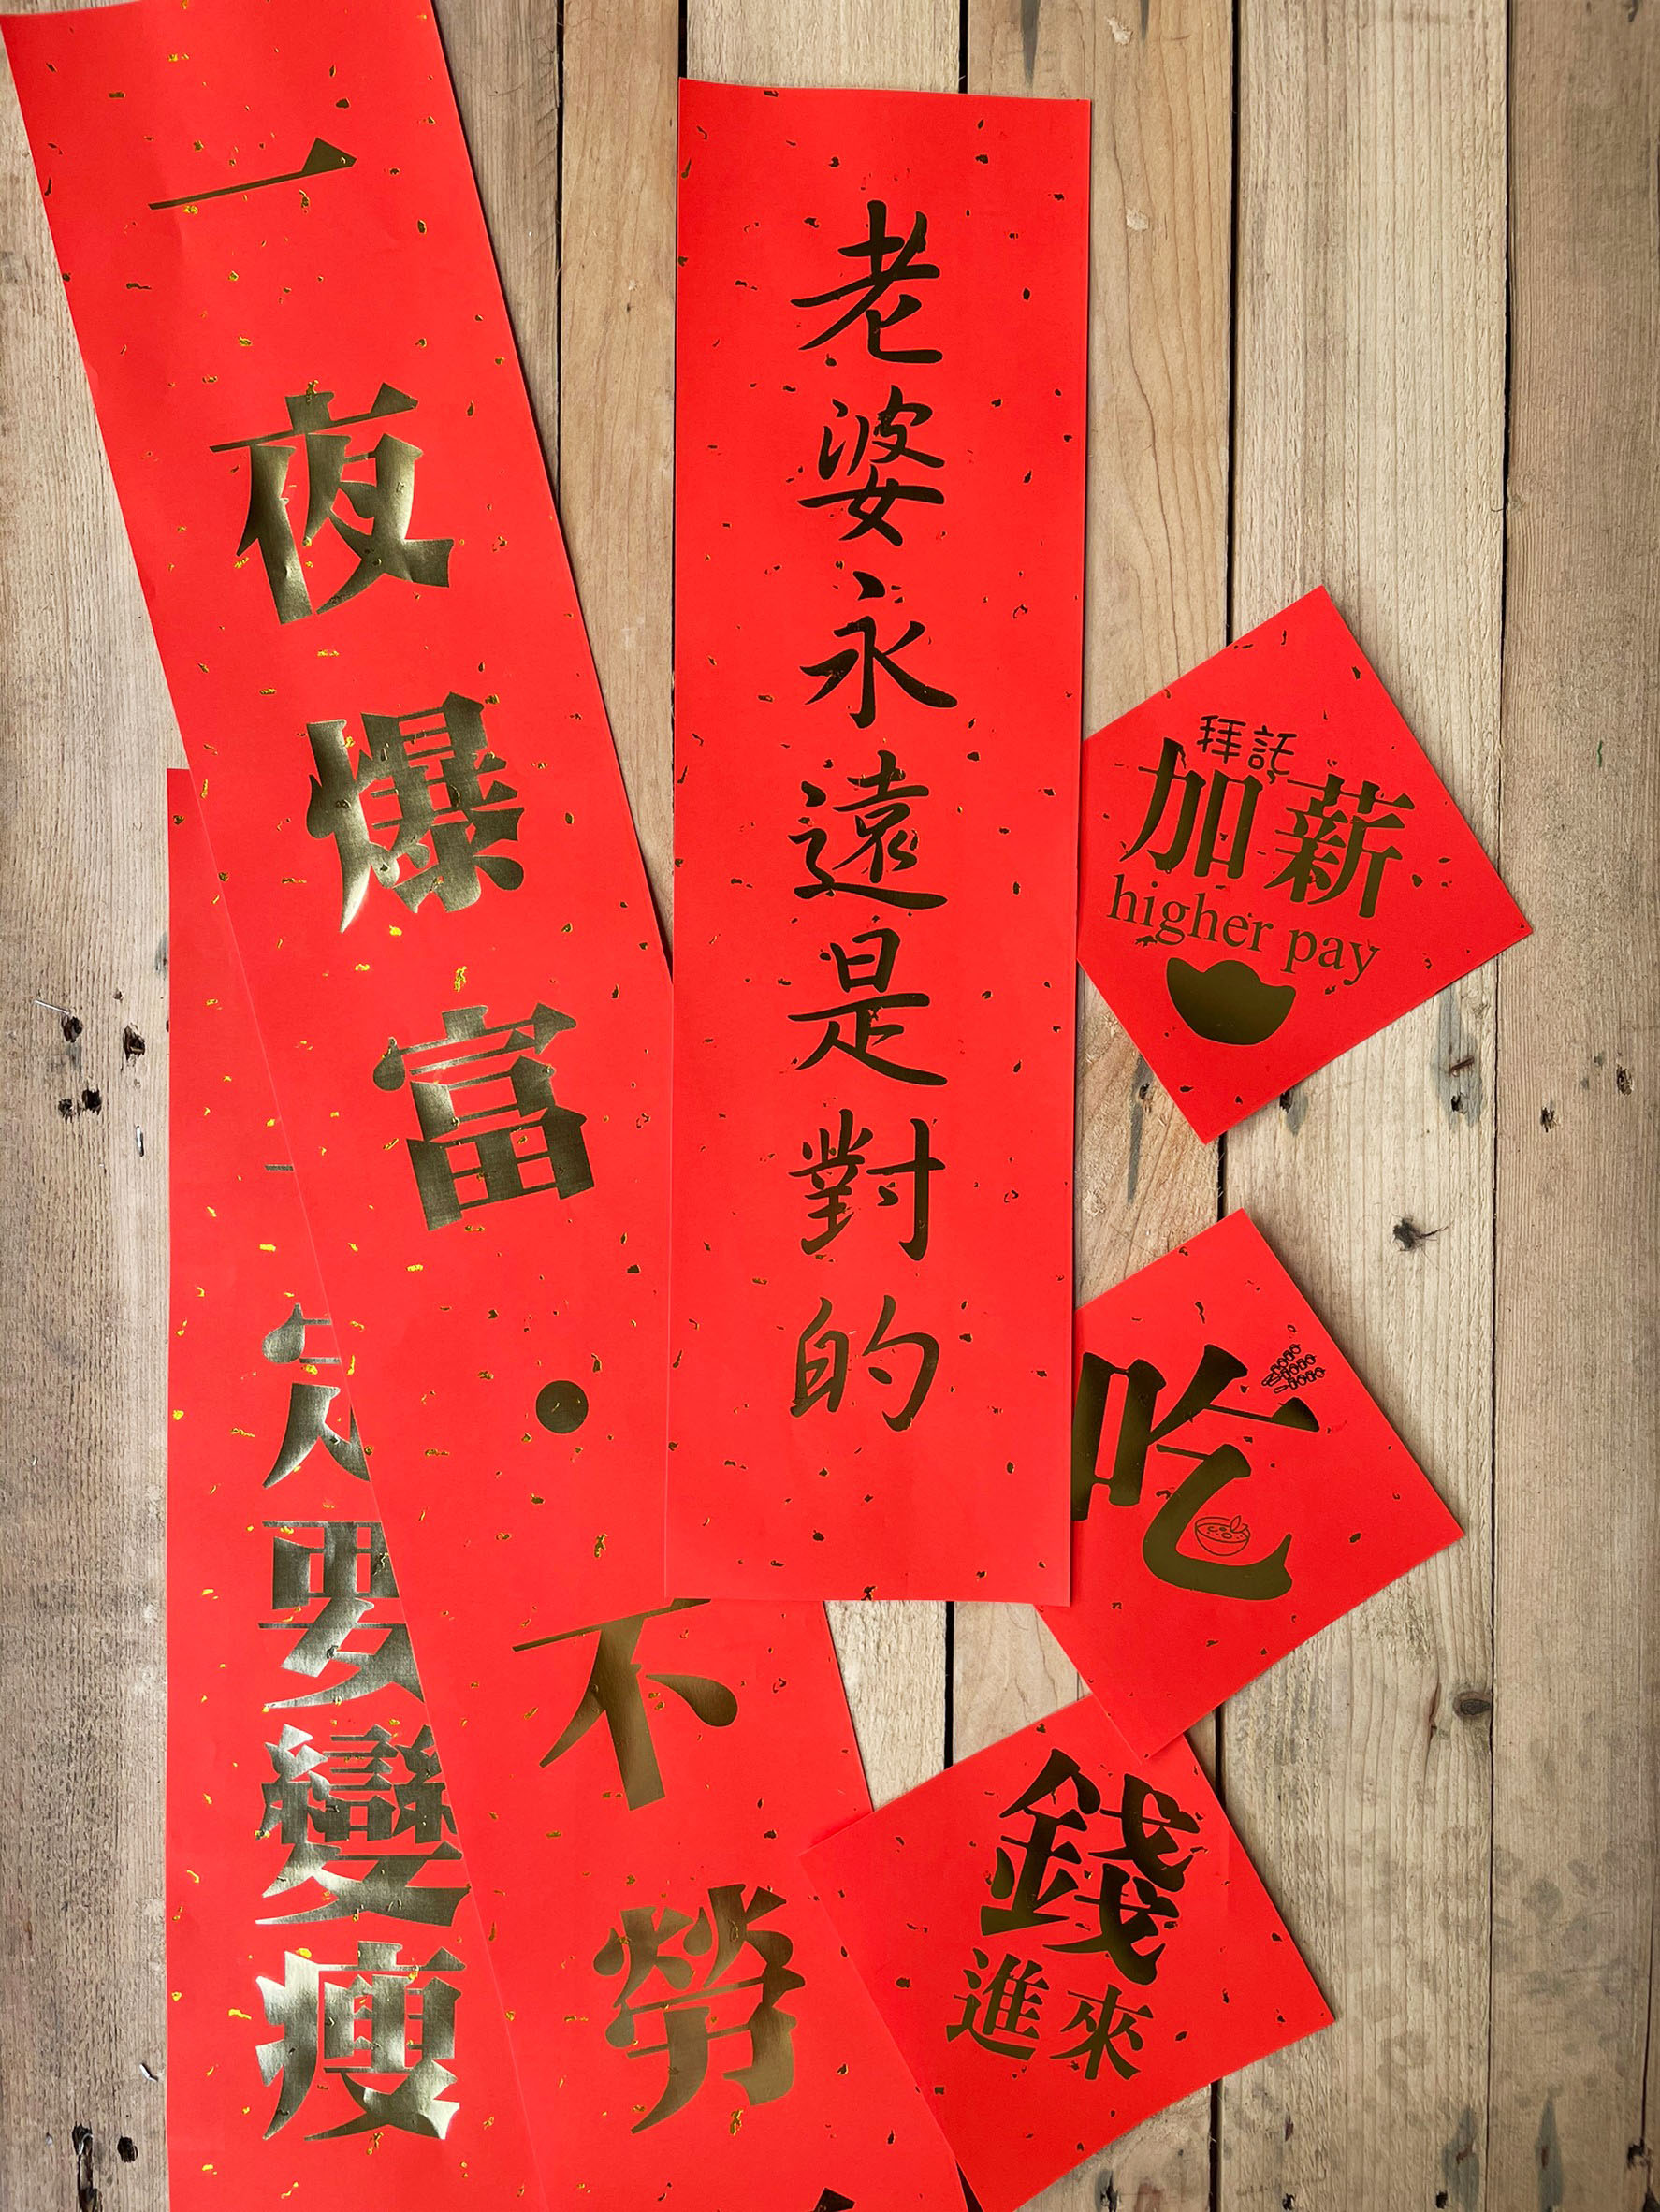 一夜爆富·不勞
老婆永遠是對的
拜託
加薪
higher pay
吃
錢
進來
要變瘦